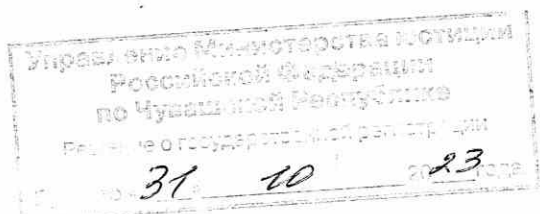 Управление Министерства юстиции
Российской Федерации
по Чувашской Республике
Решение о государственной регистрации
31 10 2023 года